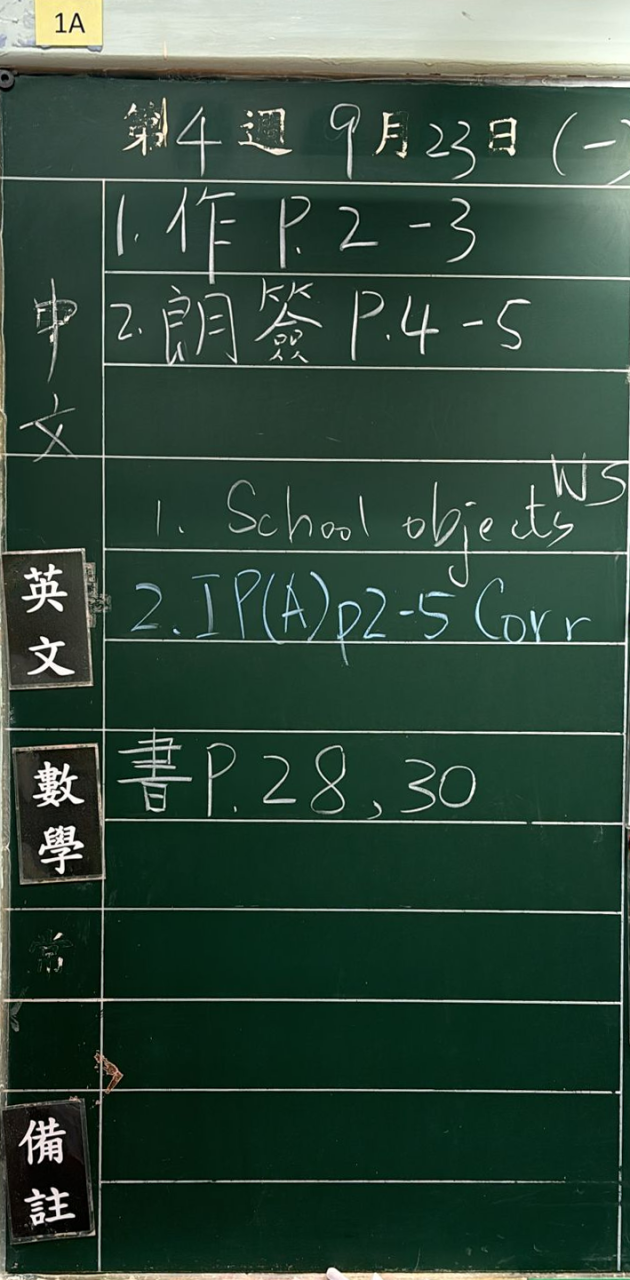 1A
第4週 9月23日(一)
中文
1. 作 P. 2-3
2. 朗簽 P.4-5
英文
1. School objects WS
2. IP(A) p2-5 Corr
數學
書 P. 28, 30
常
備註